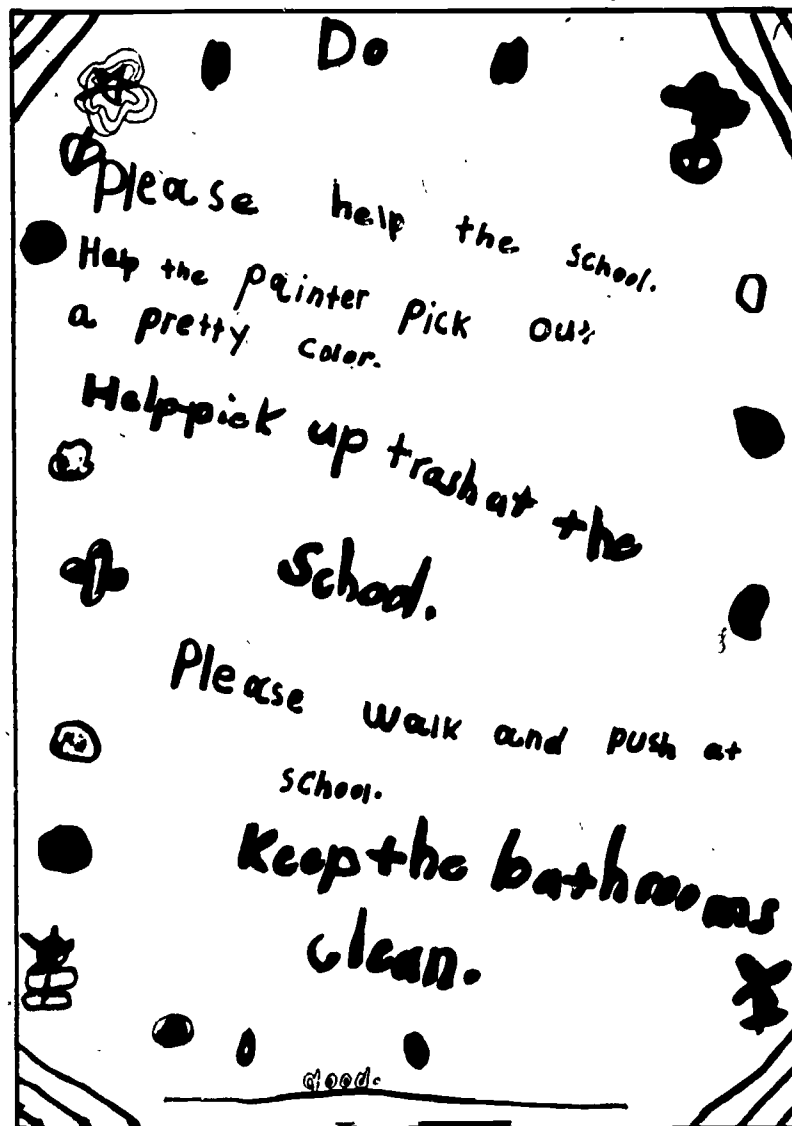 Do
Please help the school.
Help the painter pick out
a pretty color.
Help pick up trash at the
School.
Please walk and push at
school.
Keep the bathrooms
clean.
good.